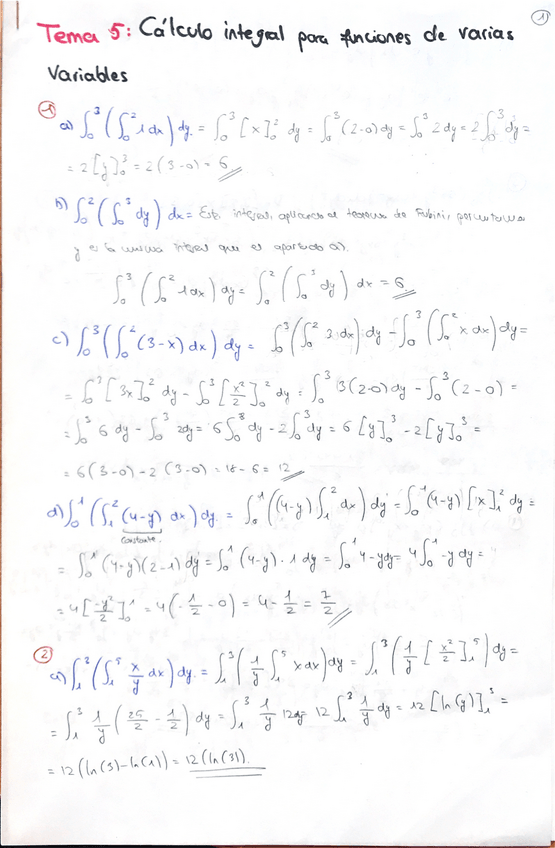 1
Tema 5: Cálculo integral para funciones de varias
Variables
1
a) ∫₀³ (∫₀² 1 dx) dy = ∫₀³ [x]₀² dy = ∫₀³ (2-0) dy = ∫₀³ 2 dy = 2 ∫₀³ dy =
= 2 [y]₀³ = 2 (3-0) = 6
b) ∫₀² (∫₀³ dy) dx = Esta integral, aplicando el teorema de Fubini,
y es la misma integral que el apartado a).
∫₀³ (∫₀² 1 dx) dy = ∫₀² (∫₀³ dy) dx = 6
c) ∫₀³ (∫₀² (3-x) dx) dy = ∫₀³ (∫₀² 3 dx) dy - ∫₀³ (∫₀² x dx) dy =
= ∫₀³ [3x]₀² dy - ∫₀³ [x²/2]₀² dy = ∫₀³ 3(2-0) dy - ∫₀³ (2-0) =
= ∫₀³ 6 dy - ∫₀³ 2dy = 6 ∫₀³ dy - 2 ∫₀³ dy = 6 [y]₀³ - 2 [y]₀³ =
= 6 (3-0) - 2 (3-0) = 18 - 6 = 12
d) ∫₀¹ (∫₁² (4-y) dx) dy = ∫₀¹ ((4-y) ∫₁² dx) dy = ∫₀¹ (4-y) [x]₁² dy =
constante
= ∫₀¹ (4-y)(2-1) dy = ∫₀¹ (4-y) · 1 dy = ∫₀¹ 4-y dy = 4 ∫₀¹ -y dy =
= 4 [-y²/2]₀¹ = 4 (-1/2 - 0) = 4 - 1/2 = 7/2
2
a) ∫₁³ (∫₁⁵ x/y dx) dy = ∫₁³ (1/y ∫₁⁵ x dx) dy = ∫₁³ (1/y [x²/2]₁⁵) dy =
= ∫₁³ 1/y (25/2 - 1/2) dy = ∫₁³ 1/y 12 dy = 12 ∫₁³ 1/y dy = 12 [ln(y)]₁³ =
= 12 (ln(3) - ln(1)) = 12 (ln(3)).